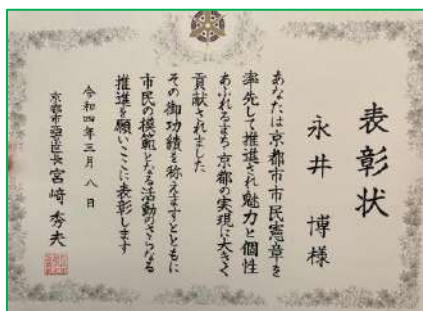 表彰状
永井 博様
あなたは京都市市民憲章を
率先して推進され魅力と個性
あふれるまち京都の実現に大きく
貢献されました
その御功績を称えますとともに
市民の模範となる活動のさらなる
推進を願いここに表彰します
令和四年三月八日
京都市西京区長 宮﨑秀夫